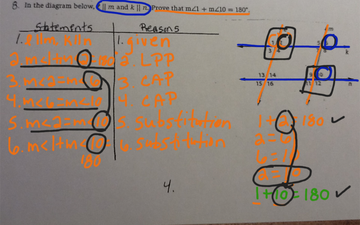 8. In the diagram below, ℓ || m and k || n. Prove that m∠1 + m∠10 = 180°.
Statements Reasons
1. 1. given
2. m∠1+m∠ 2. LPP
3. m∠2=m∠6 3. CAP
4. m∠6=m∠10 4. CAP
5. m∠2=m∠10 5. Substitution
6. m∠1+m∠10 6. Substitution
180
4.
13 14
15 16
1+2=180 ✓
2=6
1+10=180 ✓